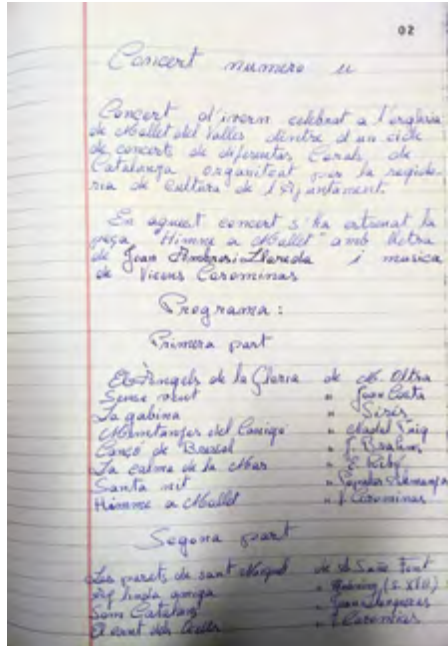 02
Concert numero u
Concert d'ivern celebrat a l'esglesia
de Mollet del Valles dintre d'un cicle
de concerts de diferentas Corals de
Catalunya organitzat per la regido-
ria de Cultura de l'Ajuntament.
En aquest concert s'ha estrenat la
peça "Himne a Mollet" amb lletra
de Joan Ambrosi Lloreda i musica
de Vicens Carominas
Programa:
Primera part
Els Àngels de la Gloria de M. Oltra
Sense vent " Joan Costa
La gabina " Sirés
Muntanyes del Canigó " Nadal Puig
Cançó de Bressol " J. Brahms
La calma de la Mar " E. Ribó
Santa nit " Popular Alemanya
Himne a Mollet " V. Carominas
Segona part
Las parets de sant Miquel de Sañe Font
Ay linda amiga " (S. XVII)
Som Catalans " Joan Llongueras
El cant dels Ocells